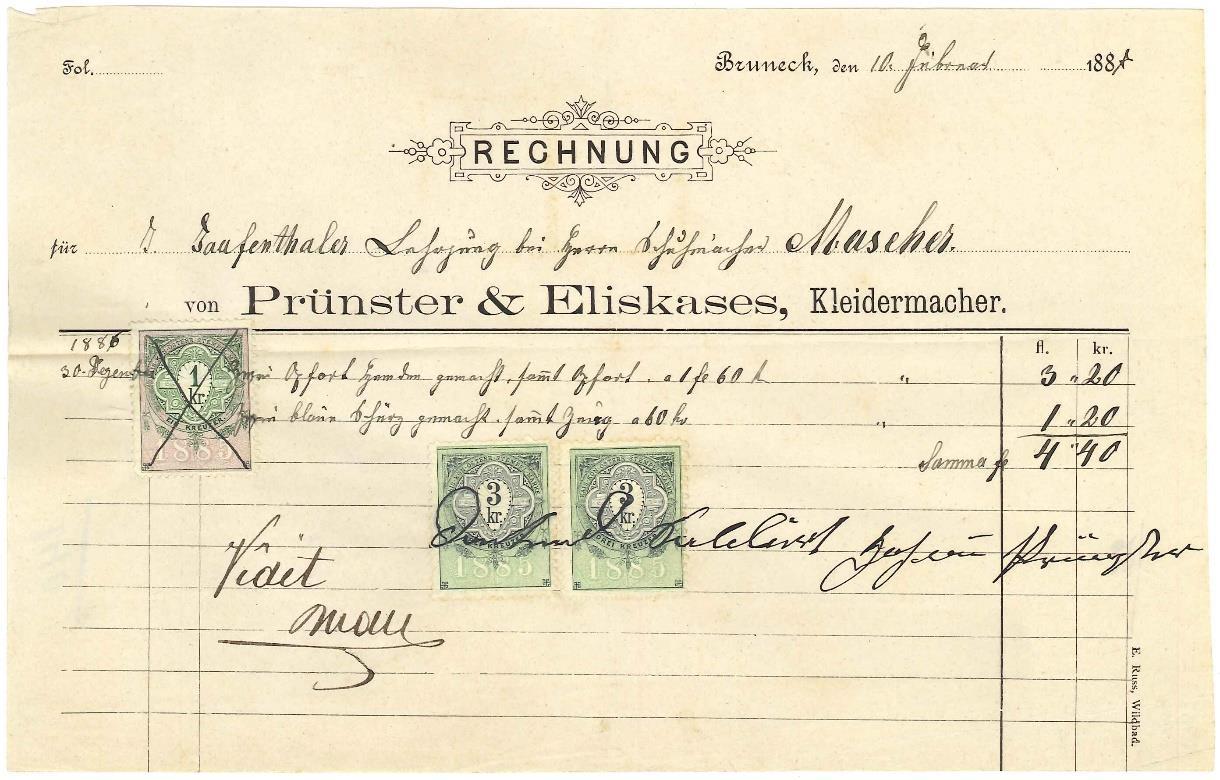 Fol.
Bruneck, den 10. Februar 188
RECHNUNG
für J. Taufenthaler Lehrjung bei Herrn Schuhmacher Mascher.
von Prünster & Eliskases, Kleidermacher.
1886
fl. kr.
30. Dezemb
1 kr.
EIN KREUZER
1885
gemacht, samt a 1 fl 60 k " 3 " 20
blaue Schürz gemacht, samt Zeug a 60 kr " 1 " 20
Summa fl 4 " 40
3 kr.
DREI KREUZER
1885
3 kr.
DREI KREUZER
1885
Dankend Johann Prünster
Vidit
E. Russ, Wildbad.